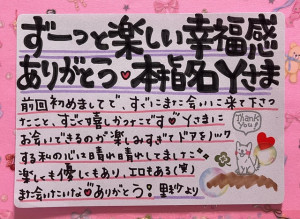 ずーっと楽しい幸福感
ありがとう♥本指名Yさま
前回初めましてで、すぐにまた会いに来て下さっ
たこと、すごく嬉しかったです♡Yさまに
お会いできるのが楽しみすぎてドアをノック
する私の心は晴れ晴れしてました
楽しくも優しくもあり、エロもある(笑)
また会いたいな♡ありがとう!里紗より
Thank you!